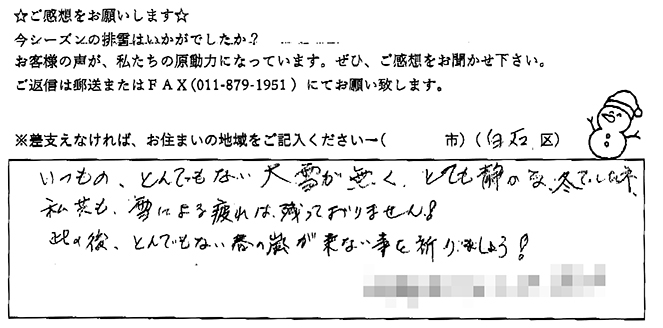 ☆ご感想をお願いします☆
今シーズンの排雪はいかがでしたか？
お客様の声が、私たちの原動力になっています。ぜひ、ご感想をお聞かせ下さい。
ご返信は郵送またはＦＡＸ(011-879-1951）にてお願い致します。
※差支えなければ、お住まいの地域をご記入ください→（ 市）（白石 区）
いつもの、とんでもない大雪が無く、とても静かな冬でした
私共も、雪による疲れは残っておりません!
此の後、とんでもない春の嵐が来ない事を祈りましょう!